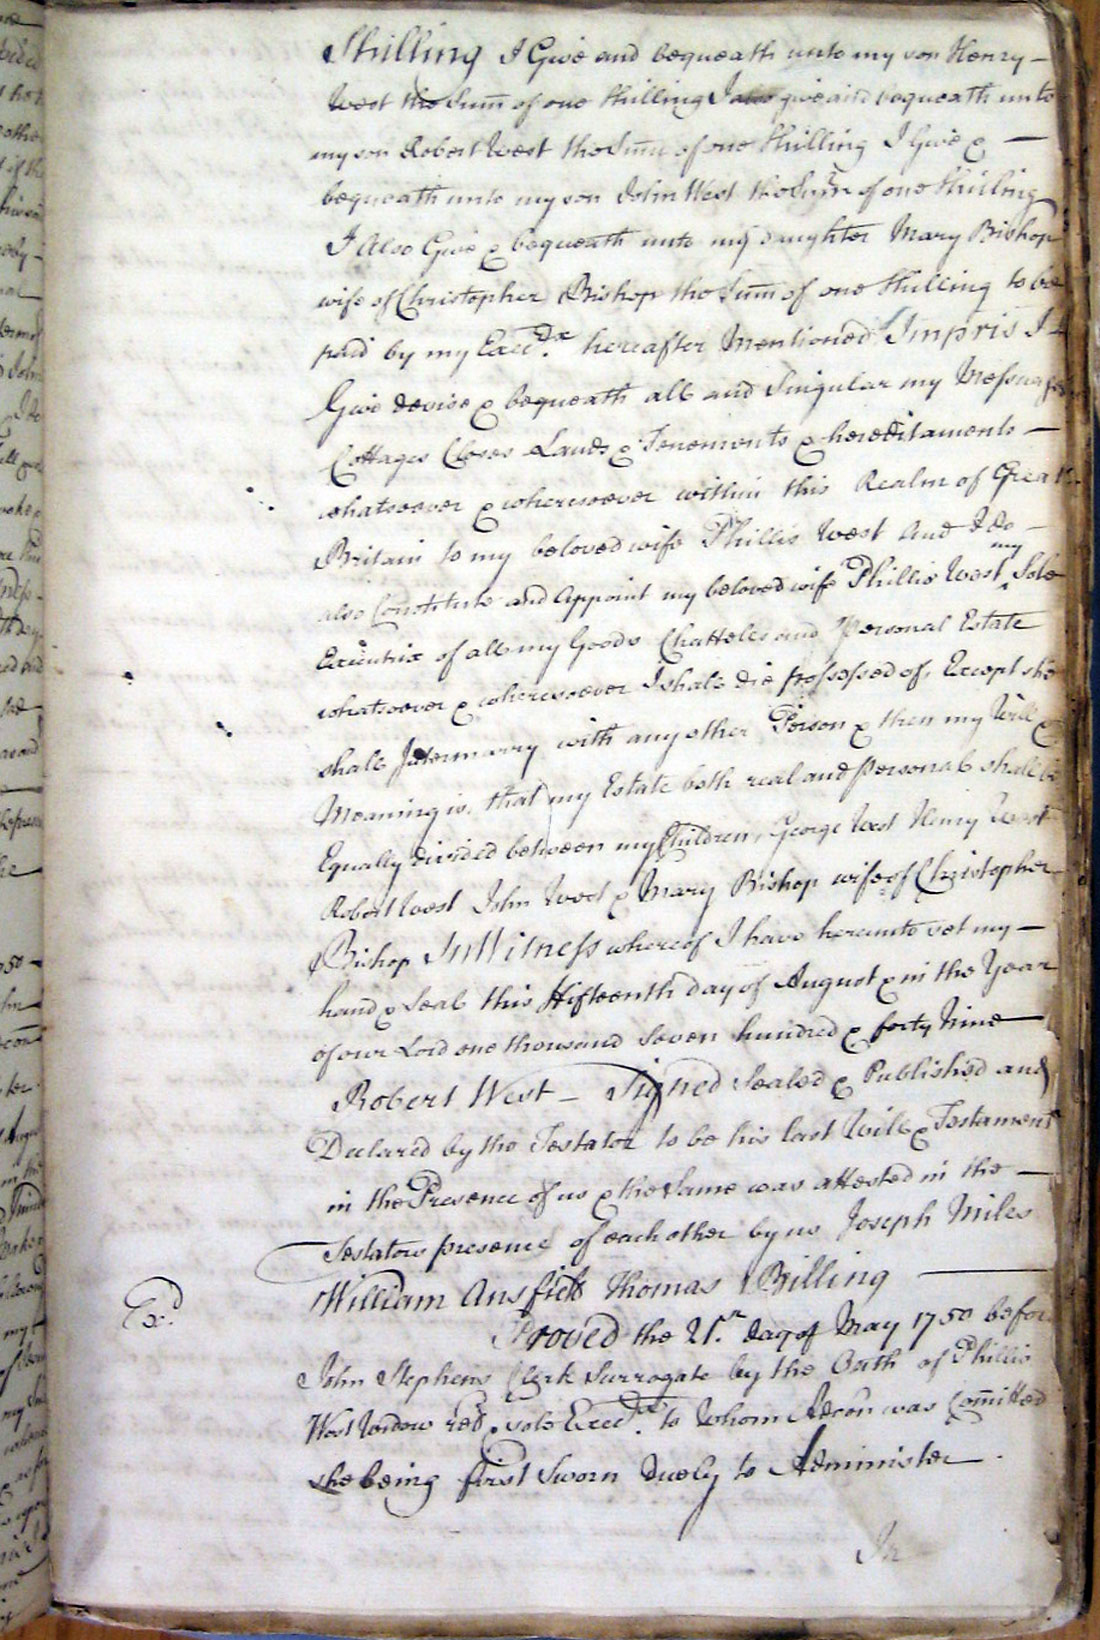 Shilling I Give and bequeath unto my son Henry -
West the Sum̄ of one Shilling I also give and bequeath unto
my son Robert West the Sum̄ of one Shilling I Give & -
bequeath unto my son John West the Sum̄ of one Shilling
I Also Give & bequeath unto my daughter Mary Bishop
wife of Christopher Bishop the Sum̄ of one Shilling to be
paid by my Execrx. hereafter Mentioned Impris I -
Give devise & bequeath all and Singular my Messuages
Cottages Closes Lands & Tenements & hereditaments -
whatsoever & wheresoever within this Realm of Great
Britain to my beloved wife Phillis West And I do -
also Constitute and Appoint my beloved wife Phillis West my Sole
Executrix of all my Goods Chattels and Personal Estate
whatsoever & wheresoever I shall die possessed of, Except she
shall Intermarry with any other Person & then my Will &
Meaning is, that my Estate both real and personal shall be
Equally divided between my Children, George West Henry West
Robert West John West & Mary Bishop wife of Christopher
Bishop In Witness whereof I have hereunto set my -
hand & Seal this fifteenth day of August & in the Year
of our Lord one thousand Seven hundred & forty Nine
Robert West - Signed Sealed & Published and
Declared by the Testator to be his last Will & Testament
in the Presence of us & the Same was attested in the -
Testators presence of each other by us Joseph Miles
William Ansfield Thomas Billing
Exd.
Proved the 21.st day of May 1750 before
John Stephens Clerk Surrogate by the Oath of Phillis
West Widow & sole Execrx. to Whom Adcon was Com̄itted
she being first Sworn Duely to Administer .
In